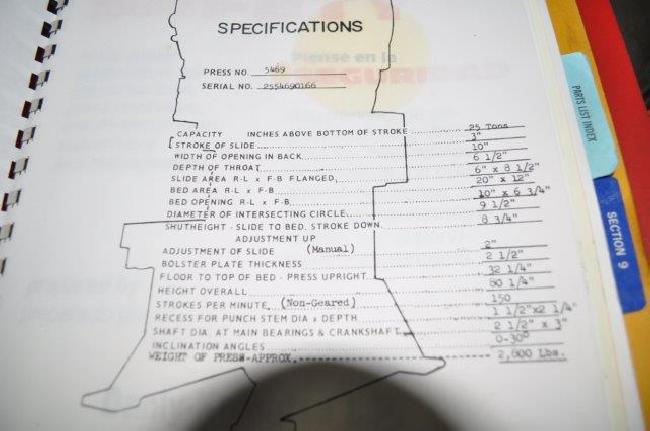 SPECIFICATIONS
Piense en la
SEGURIDAD
PRESS NO. 5469
SERIAL NO. 2554690166
CAPACITY INCHES ABOVE BOTTOM OF STROKE 25 Tons
STROKE OF SLIDE 3"
WIDTH OF OPENING IN BACK 10"
DEPTH OF THROAT 6 1/2"
SLIDE AREA R-L x F-B FLANGED 6" x 8 1/2"
BED AREA R-L x F-B 20" x 12"
BED OPENING R-L x F-B 10" x 6 3/4"
DIAMETER OF INTERSECTING CIRCLE 9 1/2"
SHUTHEIGHT - SLIDE TO BED, STROKE DOWN 8 3/4"
ADJUSTMENT UP
ADJUSTMENT OF SLIDE (Manual) 2"
BOLSTER PLATE THICKNESS 2 1/2"
FLOOR TO TOP OF BED - PRESS UPRIGHT 32 1/4"
HEIGHT OVERALL 1/4"
STROKES PER MINUTE (Non-Geared) 150
RECESS FOR PUNCH STEM DIA x DEPTH 1 1/2"x2 1/4"
SHAFT DIA. AT MAIN BEARINGS & CRANKSHAFT 2 1/2" x 3"
INCLINATION ANGLES 0-30°
WEIGHT OF PRESS-APPROX. 2,600 Lbs.
PARTS LIST INDEX
SECTION 9